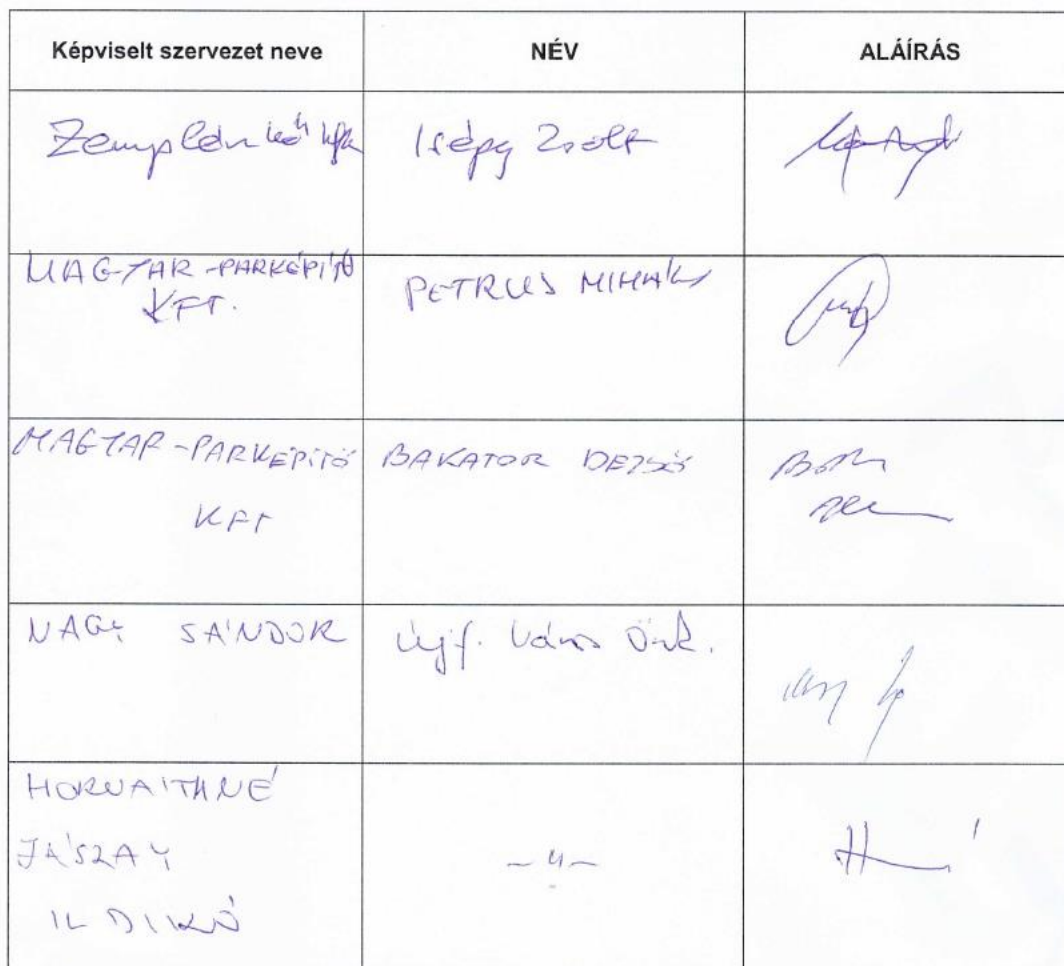 Képviselt szervezet neve NÉV ALÁÍRÁS
Zemplénkő kft. Isépy Zsolt
MAGYAR-PARKÉPÍTŐ PETRUS MIHÁLY
KFT.
MAGYAR-PARKÉPÍTŐ BAKATOR DEZSŐ
KFT
NAGY SÁNDOR Újf. Város Önk.
HORVÁTHNÉ
JÁSZAY -"-
ILDIKÓ